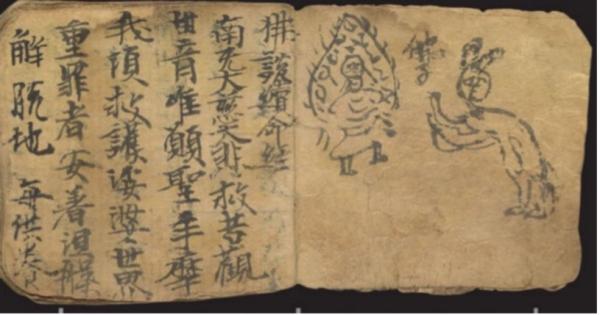 佛子
佛說續命經
南无大慈大悲救苦觀
世音唯願聖手摩
我頂救護娑婆世界
重罪者安著
解脫地 每供养